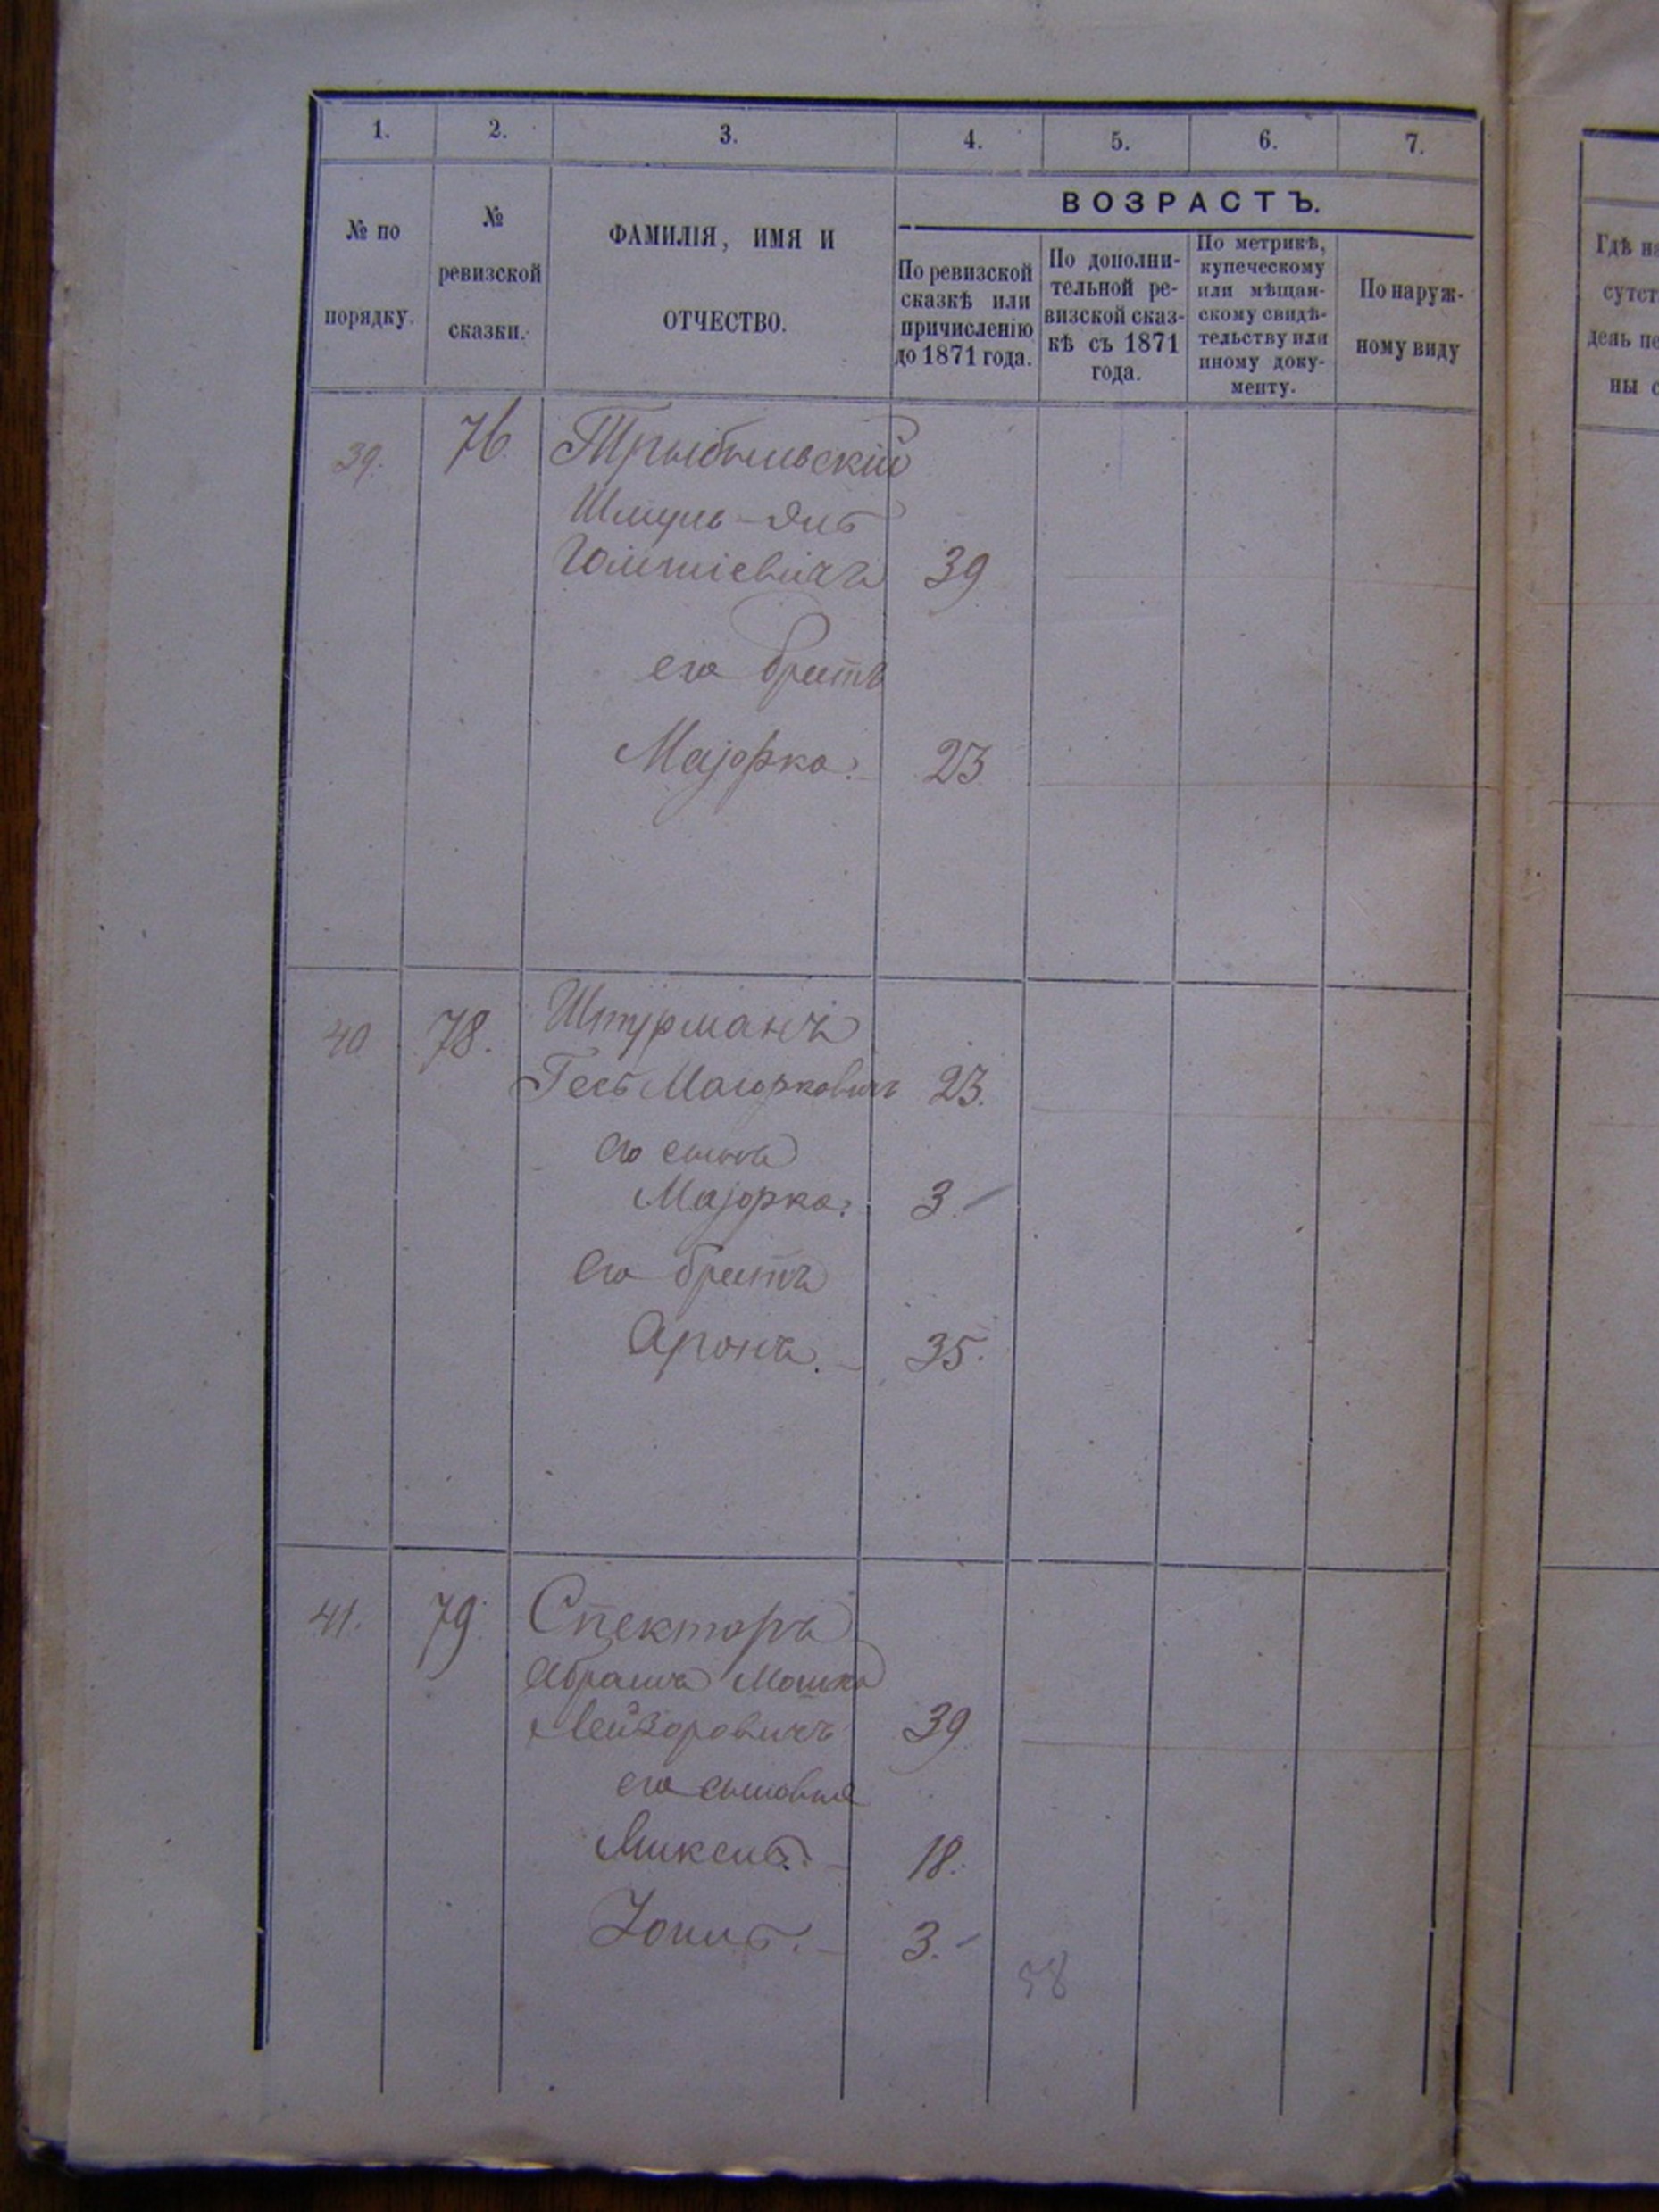 1. 2. 3. 4. 5. 6. 7.
№ по порядку.
№ ревизской сказки.
ФАМИЛІЯ, ИМЯ И ОТЧЕСТВО.
ВОЗРАСТЪ.
По ревизской
сказкѣ или
причисленію
до 1871 года.
По дополни-
тельной ре-
визской сказ-
кѣ съ 1871
года.
По метрикѣ,
купеческому
или мѣщан-
скому свидѣ-
тельству или
иному доку-
менту.
По наруж-
ному виду
39. 76.
Шмуль
39
его братъ
Маjорка. 23
40 78. Штурманъ
Маiорковичъ 23.
его сынъ
Маjорка. 3.
его братъ
Аронъ. 35.
41. 79. Спекторъ
Абрамъ Мошко
Лейзоровичъ 39
его сыновья
18.
3.
58
Гдѣ на
сутст
день пе
ны с